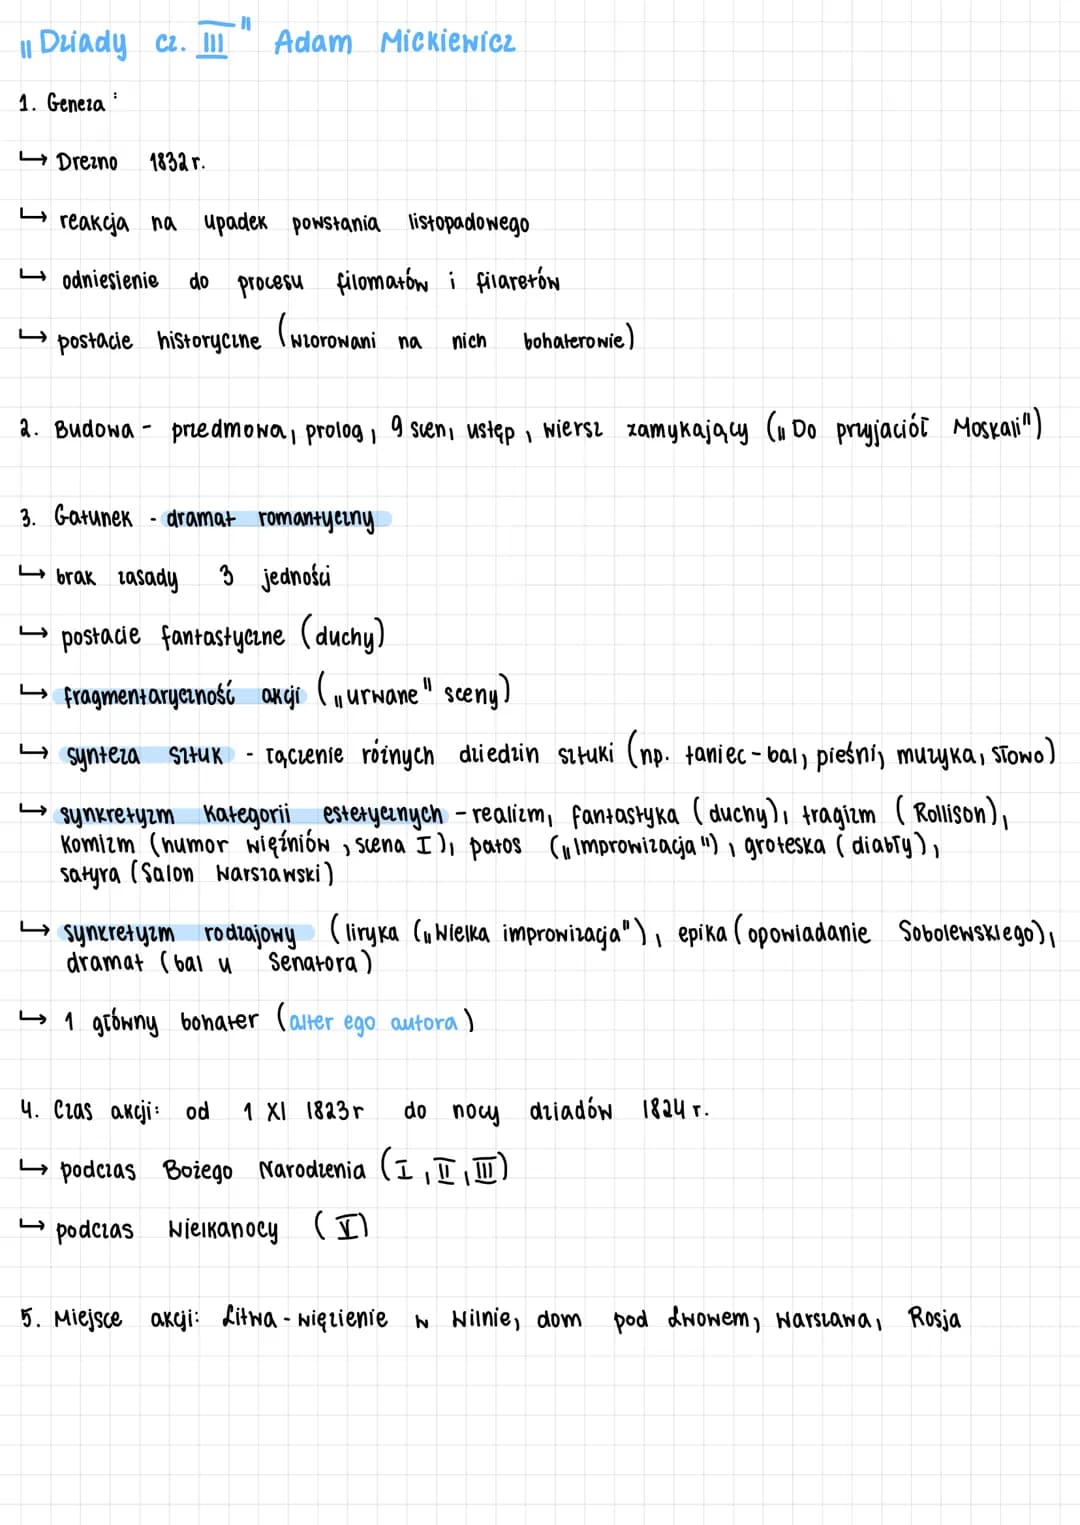 „Dziady cz. III" Adam Mickiewicz
1. Geneza :
↳ Drezno 1832 r.
↳ reakcja na upadek powstania listopadowego
↳ odniesienie do procesu filomatów i filaretów
↳ postacie historyczne (wzorowani na nich bohaterowie)
2. Budowa - przedmowa, prolog, 9 scen, ustęp, wiersz zamykający („Do przyjaciół Moskali")
3. Gatunek - dramat romantyczny
↳ brak zasady 3 jedności
↳ postacie fantastyczne (duchy)
↳ fragmentaryczność akcji („urwane" sceny)
↳ synteza sztuk - łączenie różnych dziedzin sztuki (np. taniec - bal, pieśni, muzyka, słowo)
↳ synkretyzm kategorii estetycznych - realizm, fantastyka (duchy), tragizm (Rollison),
komizm (humor więźniów, scena I), patos („Improwizacja"), groteska (diabły),
satyra (Salon Warszawski)
↳ synkretyzm rodzajowy (liryka („Wielka improwizacja"), epika (opowiadanie Sobolewskiego),
dramat (bal u Senatora)
↳ 1 główny bohater (alter ego autora)
4. Czas akcji: od 1 XI 1823 r do nocy dziadów 1824 r.
↳ podczas Bożego Narodzenia (I, II, III)
↳ podczas Wielkanocy (V)
5. Miejsce akcji: Litwa - więzienie w Wilnie, dom pod Lwowem, Warszawa, Rosja